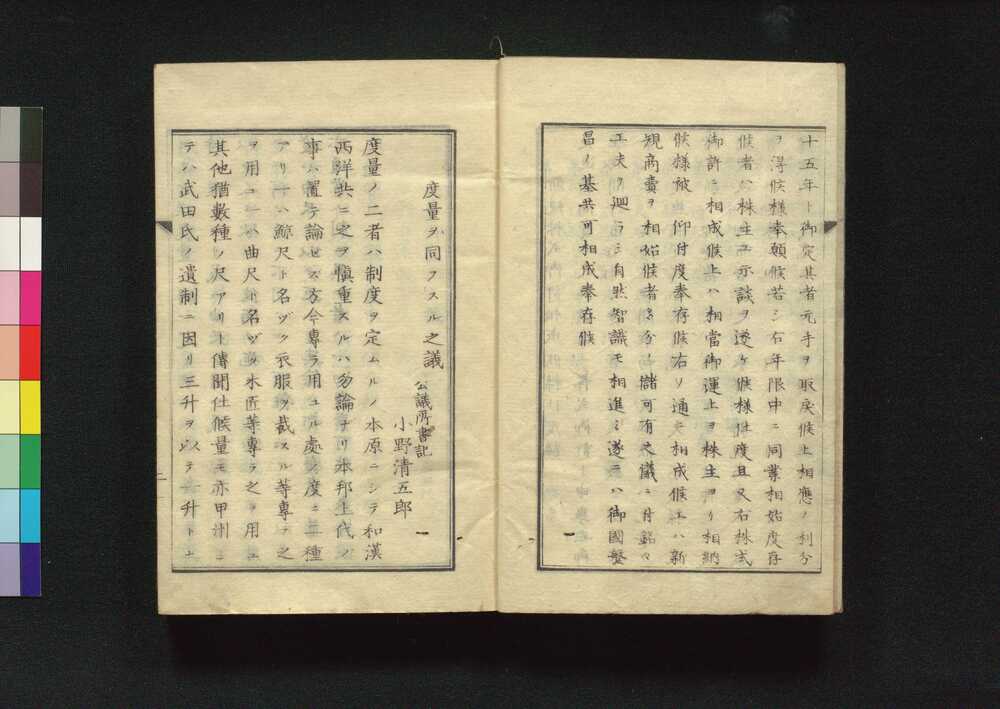 十五年ト御定其者元手ヲ取戻候上相應ノ利分
ヲ得候様奉願候若シ右年限中ニ同業相始度存
候者ハ株主エ示談ヲ遂ケ候様仕度且又右株式
御許ニ相成候上ハ相當御運上ヲ株主ヨリ相納
候様被　仰付度奉存候右ノ通ニ相成候エハ新
規商賣ヲ相始候者多分ノ儲可有之儀ニ付銘々
工夫ヲ廻ラシ自然智識モ相進ミ遂ニハ御國繁
昌ノ基共可相成奉存候
度量ヲ同フスル之議
公議所書記
小野清五郎
度量ノ二者ハ制度ヲ定ムルノ本原ニシテ和漢
西洋共ニ之ヲ慎重スルハ勿論ナリ本邦上代ノ
事ハ置テ論セス方今専ラ用ユル處ノ度ニ二種
アリ一ハ鯨尺ト名ヅク衣服ヲ裁スル等専ラ之
ヲ用ユ一ハ曲尺ト名ヅク木匠等専ラ之ヲ用ユ
其他猶數種ノ尺アリト傳聞仕候量モ亦甲州ニ
テハ武田氏ノ遺制ニ因リ三升ヲ以テ一升トシ
二